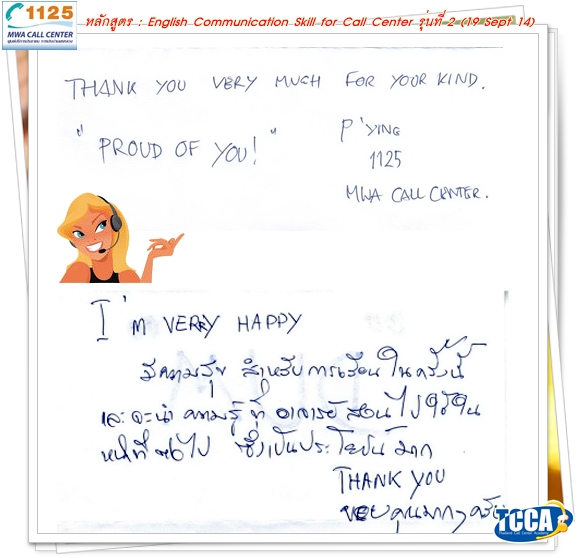 1125
MWA CALL CENTER
หลักสูตร : English Communication Skill for Call Center รุ่นที่ 2 (19 Sept 14)
THANK YOU VERY MUCH FOR YOUR KIND.
" PROUD OF YOU! "
P'YING
1125
MWA CALL CENTER.
I'm VERRY HAPPY
มีความสุข สำหรับการเรียน ในครั้งนี้
และจะนำ ความรู้ ที่ อาจารย์ สอน ไปใช้ใน
หน้าที่ ต่อไป ซึ่งเป็นประโยชน์ มาก
THANK YOU
ขอบคุณมากๆ ครับ
TCCA